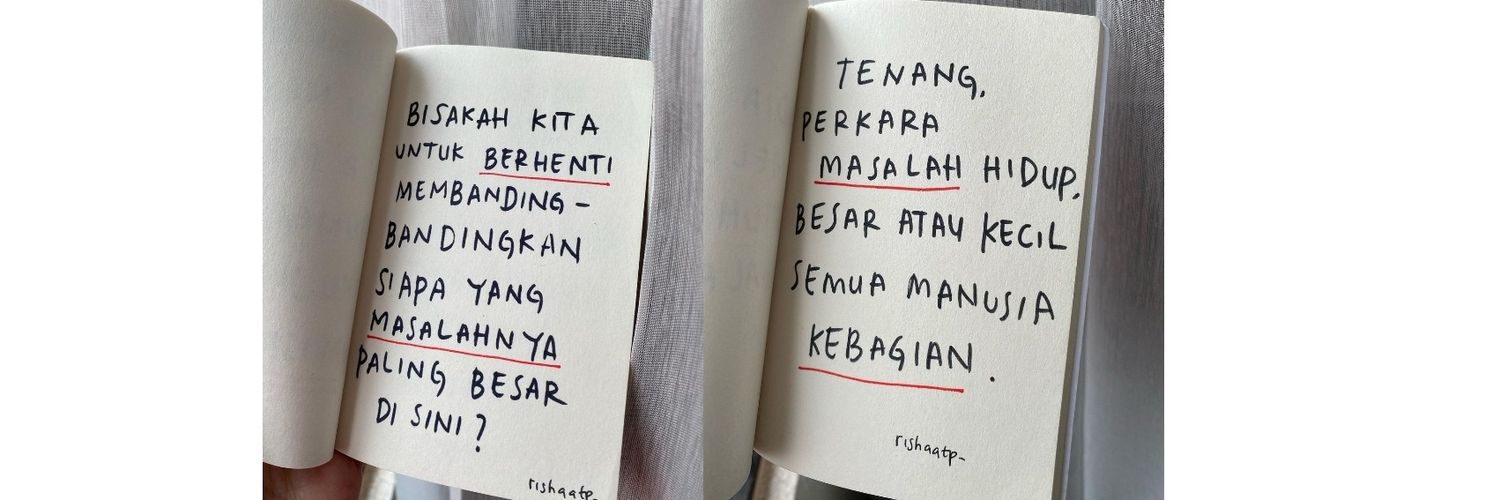 BISAKAH KITA
UNTUK BERHENTI
MEMBANDING-
BANDINGKAN
SIAPA YANG
MASALAHNYA
PALING BESAR
DI SINI?
rishaatp_
TENANG,
PERKARA
MASALAH HIDUP,
BESAR ATAU KECIL
SEMUA MANUSIA
KEBAGIAN.
rishaatp_